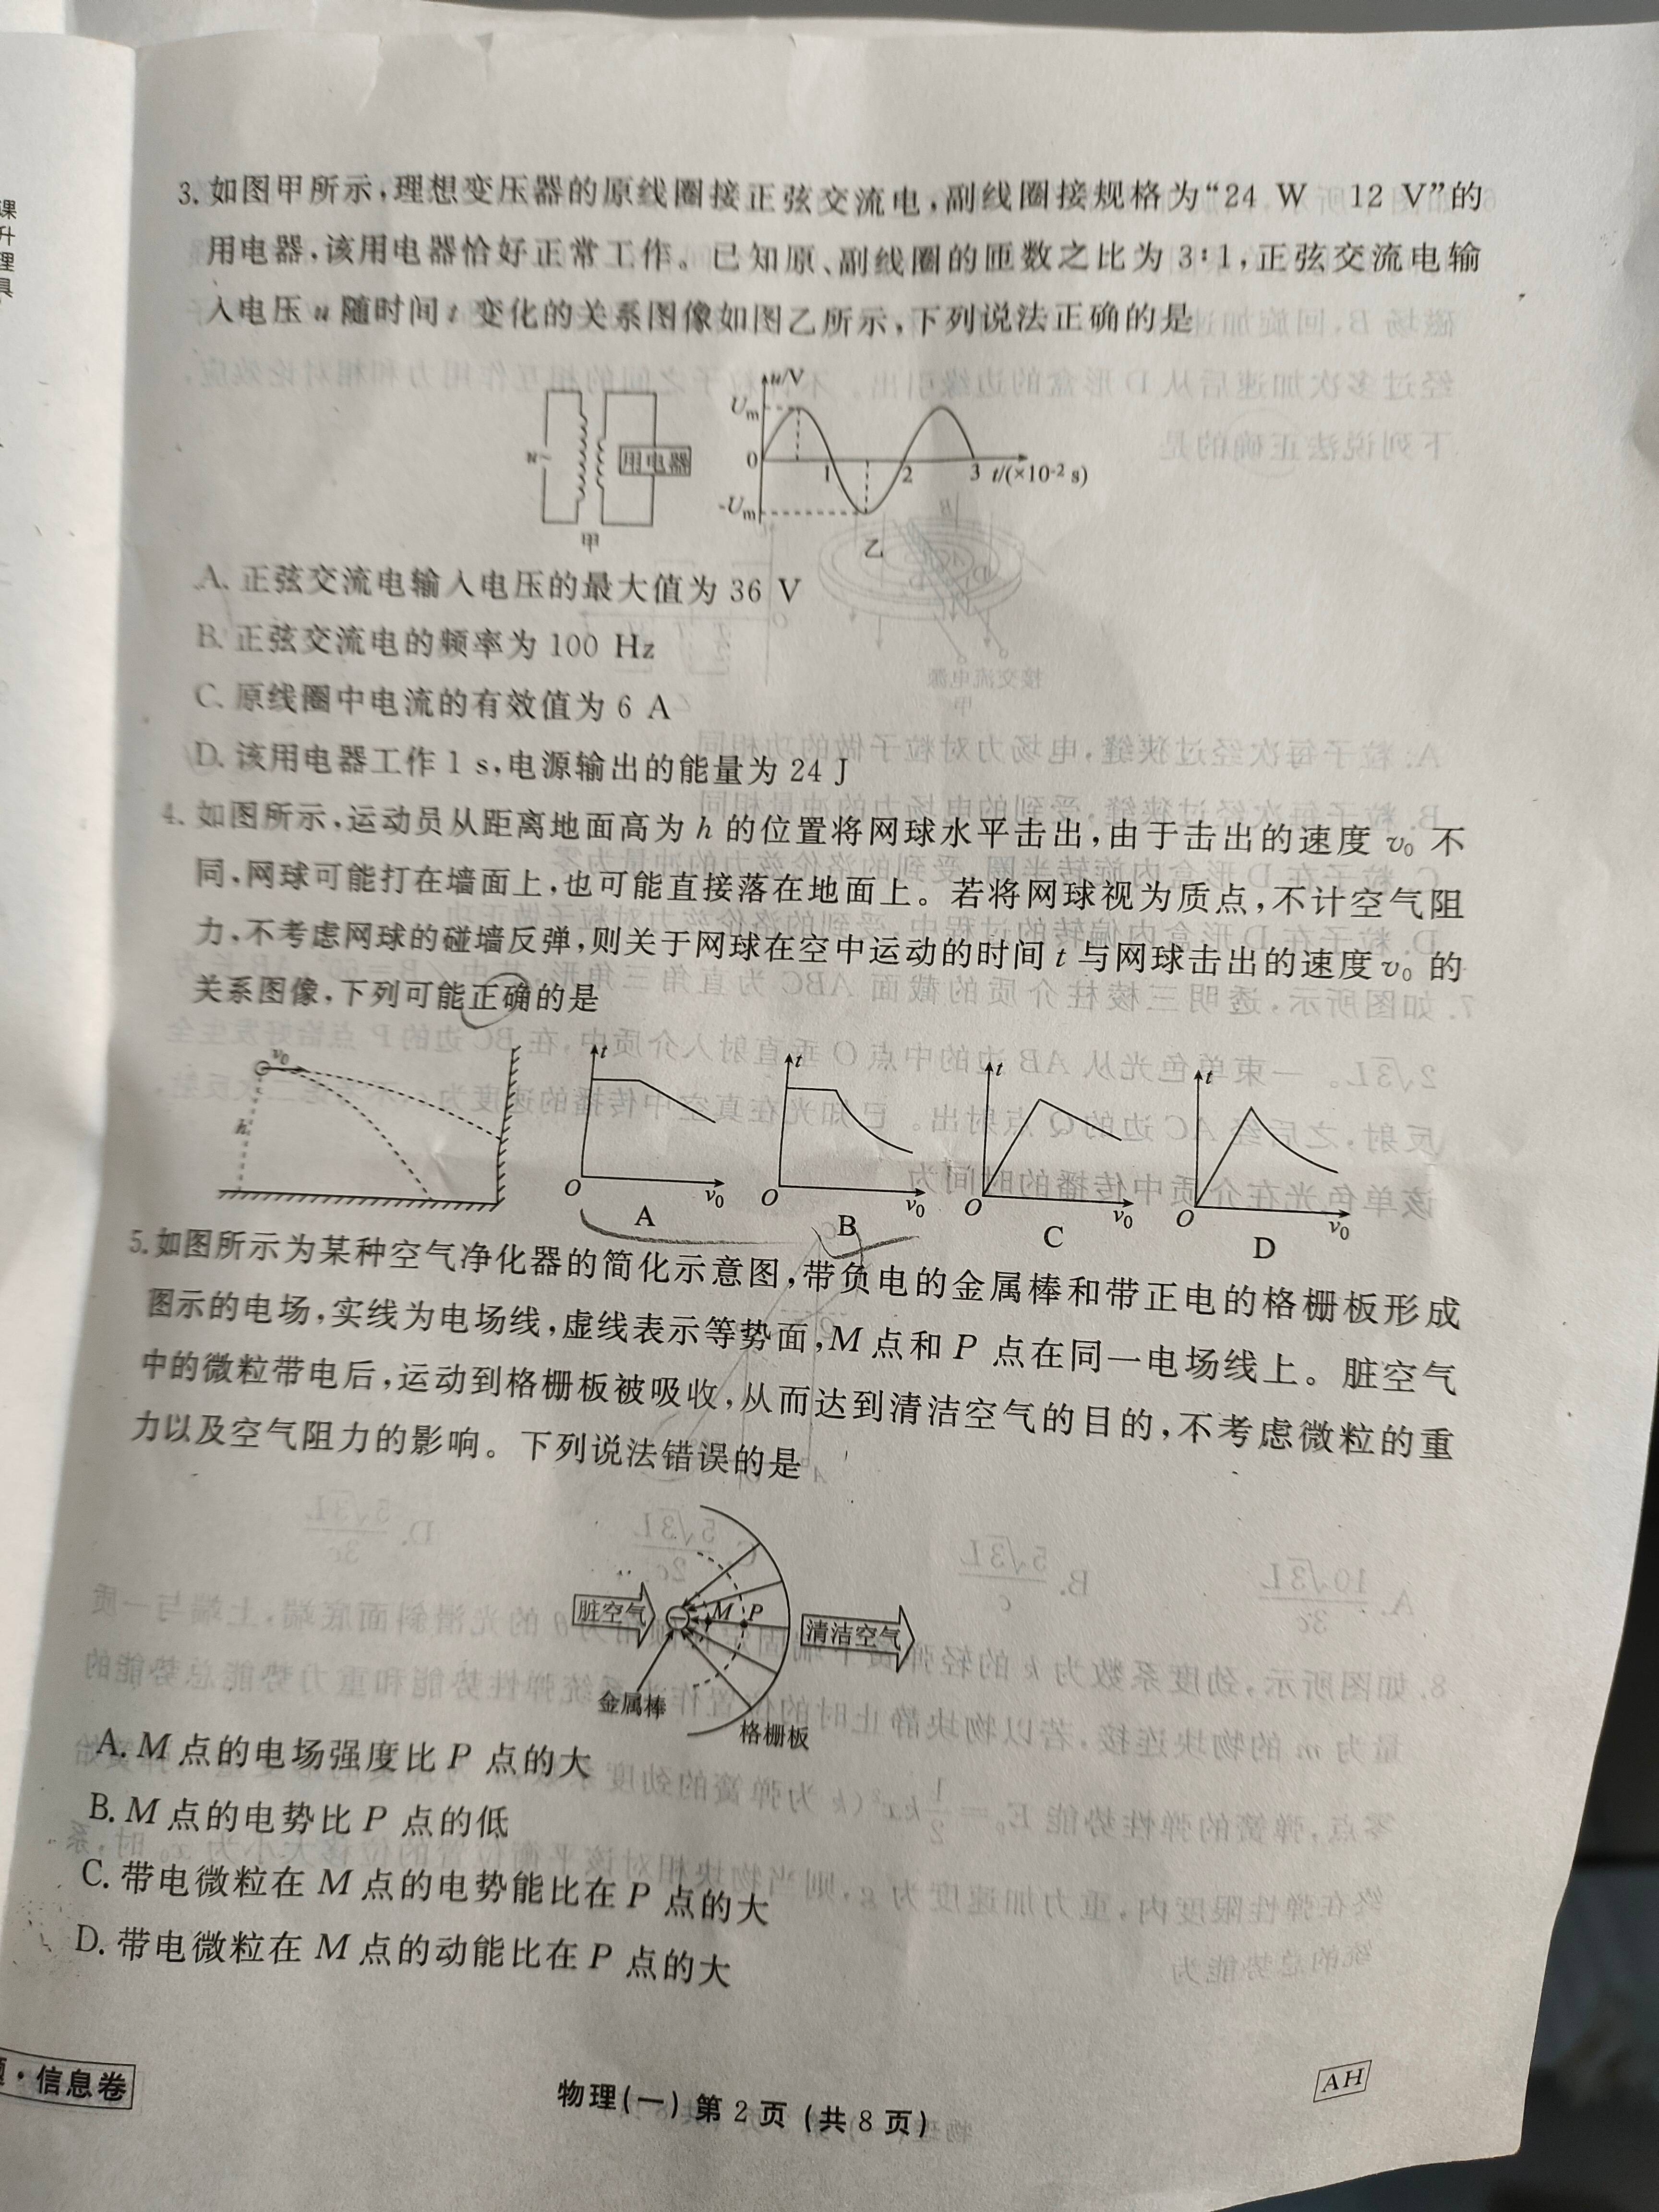 课
升
理
具
3. 如图甲所示,理想变压器的原线圈接正弦交流电,副线圈接规格为“24 W 12 V”的
用电器,该用电器恰好正常工作。已知原、副线圈的匝数之比为 3∶1,正弦交流电输
入电压 u 随时间 t 变化的关系图像如图乙所示,下列说法正确的是
u~
用电器
甲
u/V
Um
0
-Um
1
2
3 t/(×10-2 s)
乙
A. 正弦交流电输入电压的最大值为 36 V
B. 正弦交流电的频率为 100 Hz
C. 原线圈中电流的有效值为 6 A
D. 该用电器工作 1 s,电源输出的能量为 24 J
4. 如图所示,运动员从距离地面高为 h 的位置将网球水平击出,由于击出的速度 v0 不
同,网球可能打在墙面上,也可能直接落在地面上。若将网球视为质点,不计空气阻
力,不考虑网球的碰墙反弹,则关于网球在空中运动的时间 t 与网球击出的速度 v0 的
关系图像,下列可能正确的是
v0
h
t
O
v0
A
t
O
v0
B
t
O
v0
C
t
O
v0
D
5. 如图所示为某种空气净化器的简化示意图,带负电的金属棒和带正电的格栅板形成
图示的电场,实线为电场线,虚线表示等势面,M 点和 P 点在同一电场线上。脏空气
中的微粒带电后,运动到格栅板被吸收,从而达到清洁空气的目的,不考虑微粒的重
力以及空气阻力的影响。下列说法错误的是
脏空气
M P
清洁空气
金属棒
格栅板
A. M 点的电场强度比 P 点的大
B. M 点的电势比 P 点的低
C. 带电微粒在 M 点的电势能比在 P 点的大
D. 带电微粒在 M 点的动能比在 P 点的大
·信息卷
物理(一) 第 2 页 (共 8 页)
AH